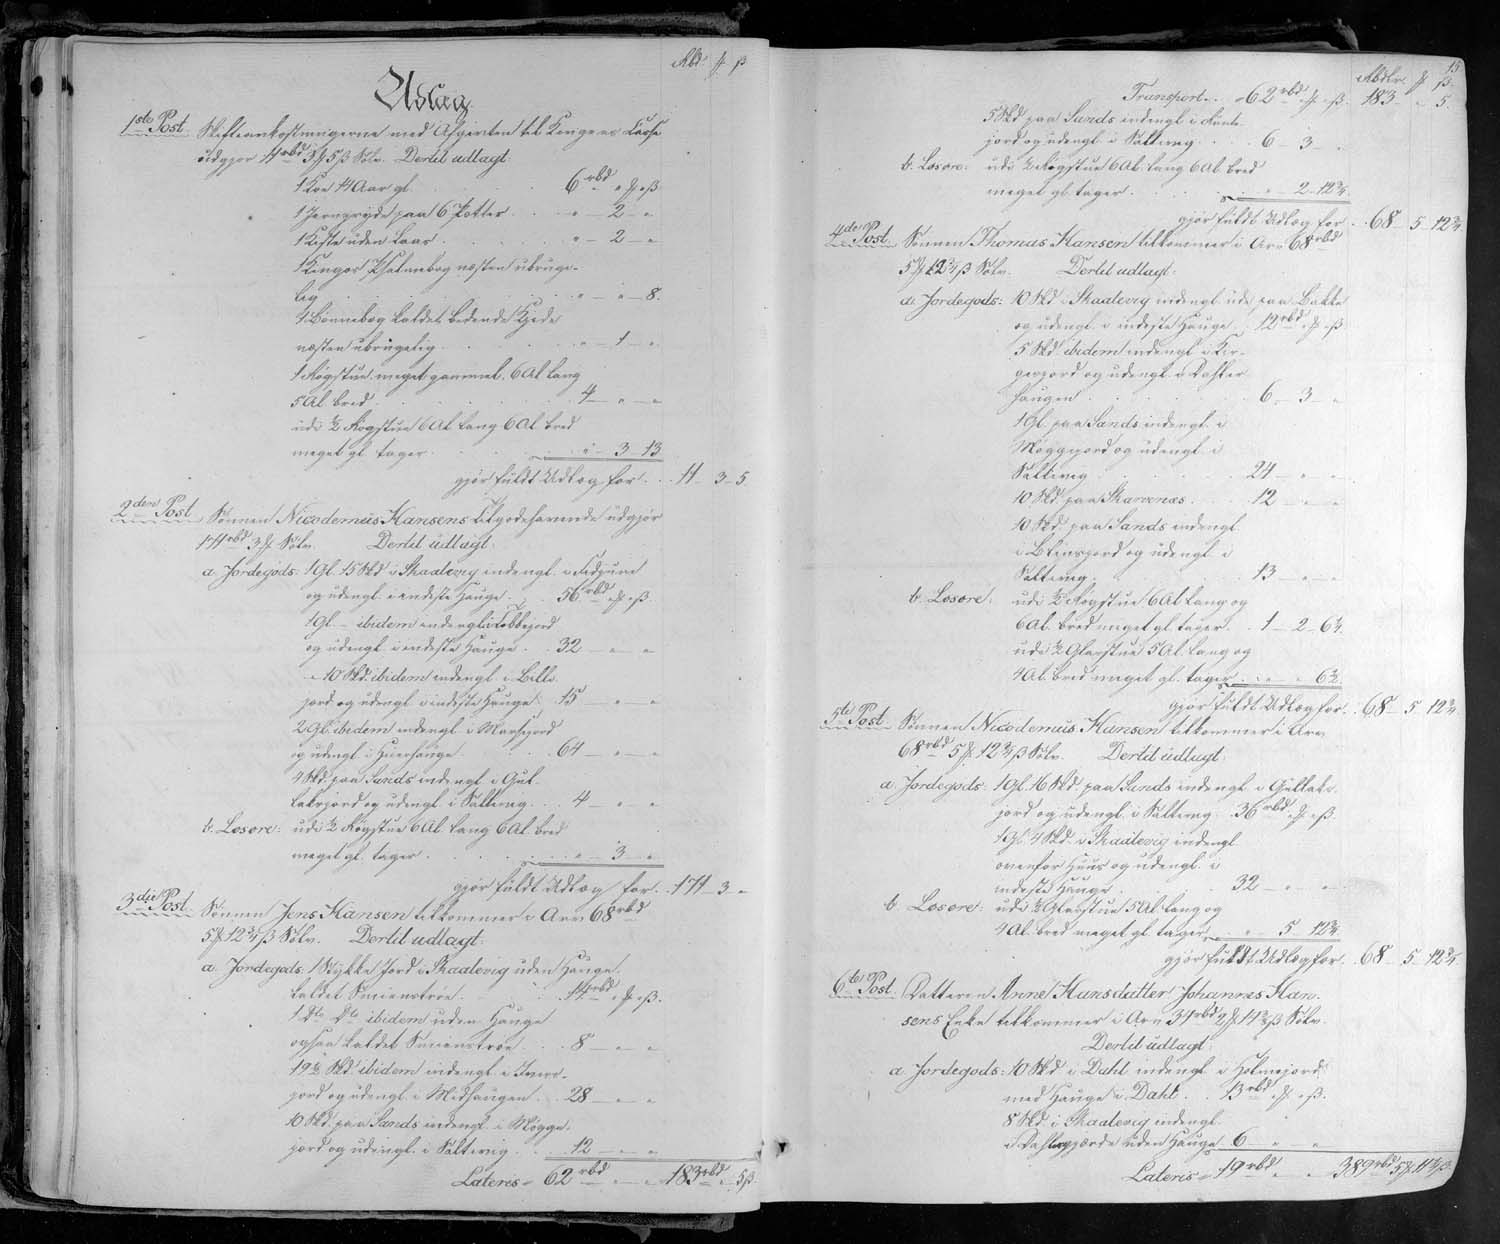 Rbd. ₰ β
Udlæg
1ste Post. Skifteomkostningerne med Afgivten til Kongens Casse
udgjør 11rbd 3₰ 5β Sølv. Dertil udlagt:
1 Koe 14 Aar gl. 6rbd „₰ „β
1 Jerngryde paa 6 Potter. „ – 2 – „
1 Kiste uden Laas. „ – 2 – „
1 Kingos Psalmebog næsten ubruge-
lig „ – „ – 8.
1 Bønnebog kaldet bedende Kjede
næsten ubrugelig. „ – 1 – „
1 Røgstue meget gammel. 6 Al. lang
5 Al. bred. 4 – „ – „
udi ½ Røgstue 6 Al. lang 6 Al. bred
meget gl. tages. „ – 3 – 13
gjør fuldt Udlæg for. 11 – 3 – 5.
2den Post. Sønnen Nicodemus Hansens Tilgodehavende udgjør
171rbd 3₰ Sølv. Dertil udlagt:
a. Jordegods: 1 Gl. 15 Skd. i Skaalevig indengl. i
og udengl. i indeste Hauge. 56rbd „₰ „β.
1 Gl. – ibidem indengl. i Tobbejord
og udengl. i indeste Hauge. 32 – „ – „
– 10 Skd. ibidem indengl. i Bille
jord og udengl. i indeste Hauge. 15 – „ – „
2 Gl. ibidem indengl. i
og udengl. i 64 – „ – „
4 Skd. paa Sands indengl. i Gul-
lakrjord og udengl. i Saltevig. 4 – „ – „
b. Løsøre: udi ½ Røgstue 6 Al. lang 6 Al. bred
meget gl. tages. „ – 3 – „
gjør fuldt Udlæg for. 171 – 3 – „
3die Post. Sønnen Jens Hansen tilkommer i Arv 68rbd
5₰ 12¾β Sølv. Dertil udlagt:
a. Jordegods: 1 Stykke Jord i Skaalevig uden Hauge.
kaldet Smienstrøe. 14rbd „₰ „β.
1 Dto Do ibidem uden Hauge
ogsaa kaldet Smienstrøe. 8 – „ – „
19½ Skd. ibidem indengl. i
jord og udengl. i Midhaugen. 28 – „ – „
10 Skd. paa Sands indengl. i Møgge-
jord og udengl. i Saltevig. 12 – „ – „
Lateris „ 62rbd – „ – „ 183rbd „ – 5β.
15
Rbdlr. ₰ β.
Transport. „ 62rbd „₰ „β. 183 – „ – 5.
5 Skd paa Sands indengl. i
jord og udengl. i Saltevig. 6 – 3 – „
b. Løsøre: udi ½ Røgstue 6 Al. lang 6 Al. bred
meget gl. tages. „ – 2 – 12¾
gjør fuldt Udlæg for. 68 – 5 – 12¾
4de Post. Sønnen Thomas Hansen tilkommer i Arv 68rbd
5₰ 12¾β Sølv. Dertil udlagt:
a. Jordegods: 10 Skd. i Skaalevig indengl. ude paa Bakke
og udengl. i indeste Hauge. 12rbd „₰ „β.
5 Skd. ibidem indengl. i Kir-
gejord og udengl. i
haugen. 6 – 3 – „
1 Gl. paa Sands indengl. i
Møggejord og udengl. i
Saltevig. 24 – „ – „
10 Skd. paa Skarvenæs. 12 – „ – „
10 Skd. paa Sands indengl.
i og udengl. i
Saltevig. 13 – „ – „
b. Løsøre: udi ½ Røgstue 6 Al. lang og
6 Al. bred meget gl. tages. 1 – 2 – 6¼.
udi ½ Glarstue 5 Al. lang og
4 Al. bred meget gl. tages. „ – „ – 6½.
gjør fuldt Udlæg for. 68 – 5 – 12¾
5te Post. Sønnen Nicodemus Hansen tilkommer i Arv
68rbd 5₰ 12¾β Sølv. Dertil udlagt:
a. Jordegods: 1 Gl. 16 Skd. paa Sands indengl. i Gullakr-
jord og udengl. i Saltevig. 36rbd „₰ „β.
1 Gl. 4 Skd. i Skaalevig indengl.
ovenfor Huus og udengl. i
indeste Hauge. 32 – „ – „
b. Løsøre: udi ½ Glarstue 5 Al. lang og
4 Al. bred meget gl. tages. „ – 5 – 12¾.
gjør fuldt Udlæg for. 68 – 5 – 12¾
6te Post. Datteren Anne Hansdatter Johannes Han-
sens Enke tilkommer i Arv 34rbd 2₰ 14⅜β Sølv.
Dertil udlagt:
a. Jordegods: 10 Skd. i Dahl indengl. i Holmejord
med Hauge i Dahl. 13rbd „₰ „β.
8 Skd. i Skaalevig indengl.
i uden Hauge 6 – „ – „
Lateris „ 19rbd – „ – „ 389rbd 5₰ 11¼β.